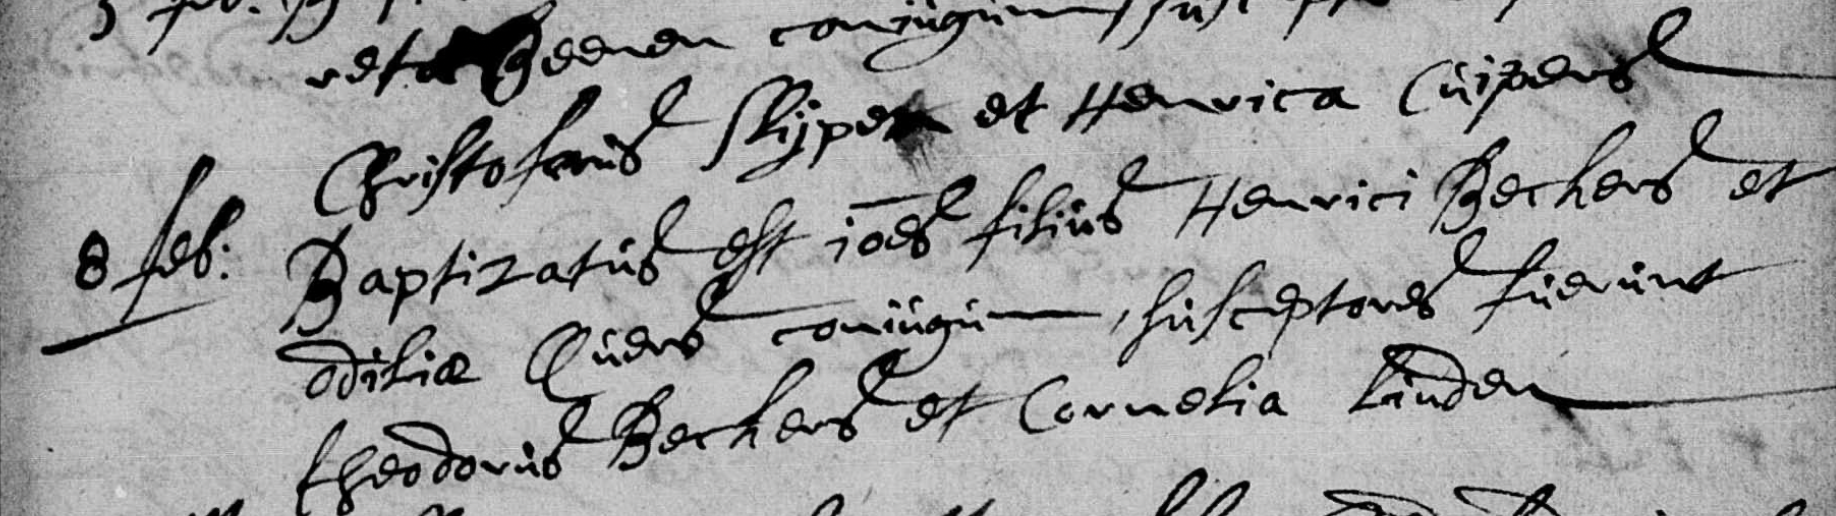 reta Beenen coniugum
Christoferus Slijpen et Henrica Cuijpers
8 feb: Baptizatus est ioēs filius Henrici Beckers et
odiliæ Quers coniugum, susceptores fuerunt
theodorus Beckers et Cornelia Linden